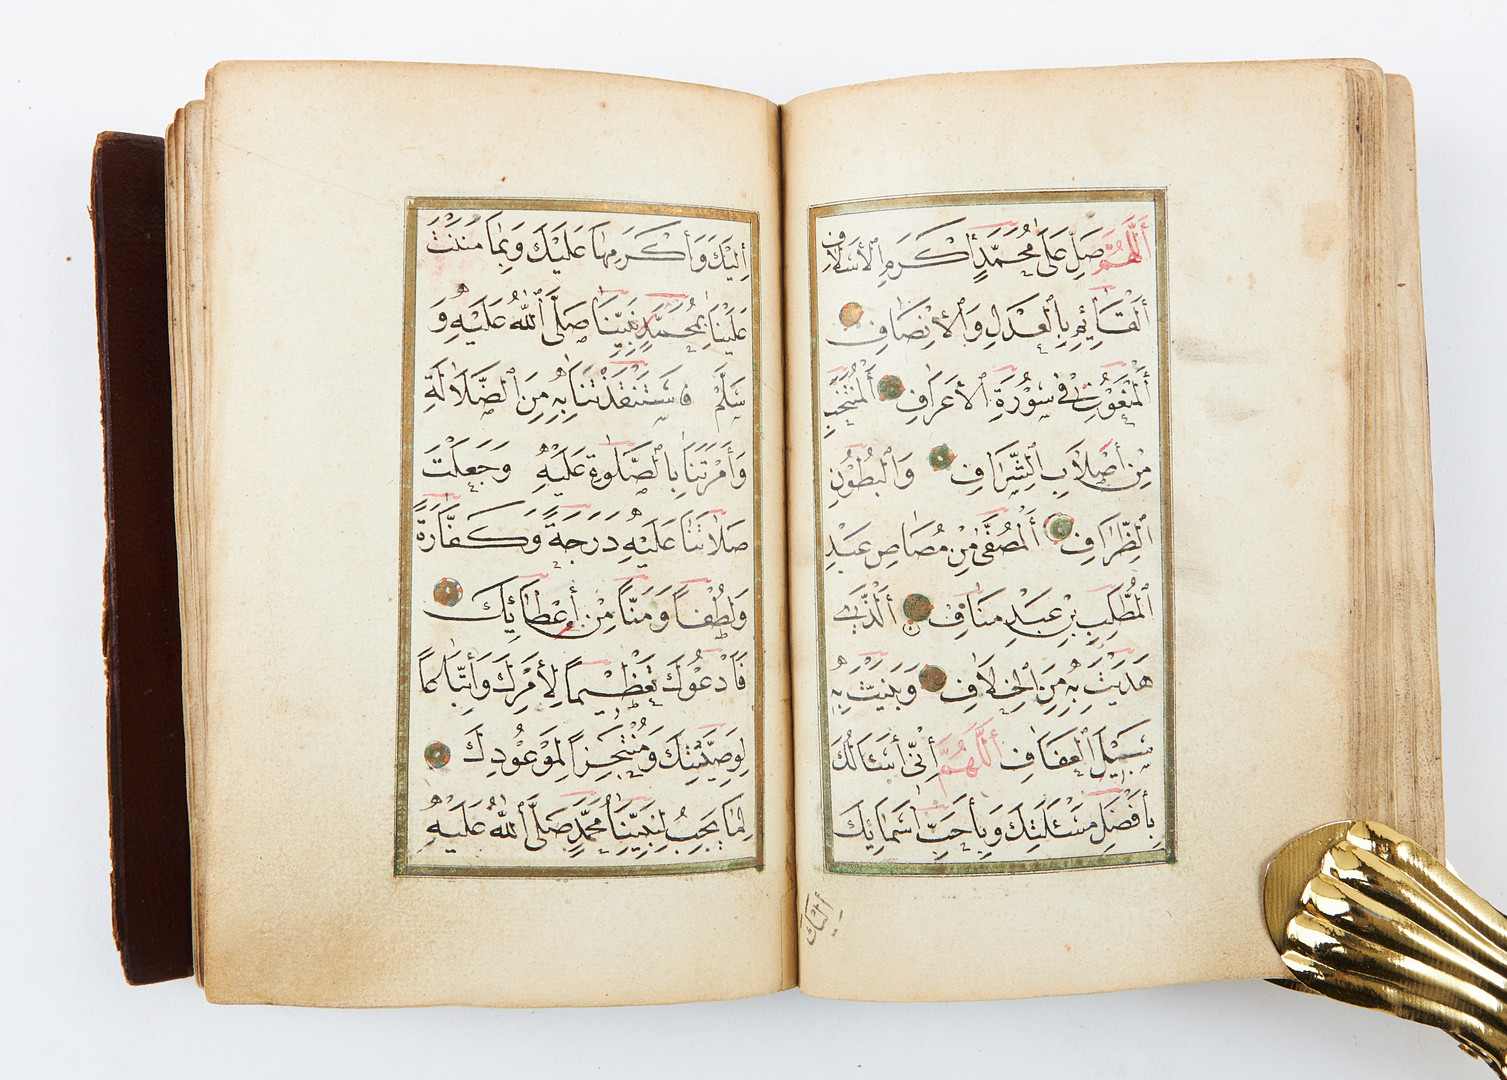 أَللّٰهُمَّ صَلِّ عَلَى مُحَمَّدٍ أَكْرَمِ الْأَسْلَافِ
أَلْقَائِمِ بِالْعَدْلِ وَالْأِنْصَافِ
أَلْمَنْعُوتِ فِي سُورَةِ الْأَعْرَافِ أَلْمُنْتَخَبِ
مِنْ أَصْلَابِ الشِّرَافِ وَالْبُطُونِ
الظِّرَافِ أَلْمُصَفَّى مِنْ مُصَاصِ عَبْدِ
الْمُطَّلِبِ بْنِ عَبْدِ مَنَافِ أَلَّذِي
هَدَيْتَ بِهِ مِنَ الْخِلَافِ وَبَيَّنْتَ بِهِ
سَبِيلَ الْعَفَافِ أَللّٰهُمَّ إِنِّي أَسْئَالُكَ
بِأَفْضَلِ مَسْئَلَتِكَ وَبِأَحَبِّ اَسْمَائِكَ
إِلَيْكَ
إِلَيْكَ وَأَكْرَمِهَا عَلَيْكَ وَبِمَا مَنَنْتَ
عَلَيْنَا بِمُحَمَّدٍ نَبِيِّنَا صَلَّى اللّٰهُ عَلَيْهِ وَ
سَلَّمْ فَاسْتَنْقَذْتَنَا بِهِ مِنَ الضَّلَالَةِ
وَأَمَرْتَنَا بِالصَّلٰوةِ عَلَيْهِ وَجَعَلْتَ
صَلَاتَنَا عَلَيْهِ دَرَجَةً وَكَفَّارَةً
وَلُطْفاً وَمَنّاً مِنْ أِعْطَائِكَ
فَأَدْعُوكَ تَعْظِيماً لِأَمْرِكَ وَأَتِّبَاعاً
لِوَصِيَّتِكَ وَمُنْتَجِزاً لِمَوْعُودِكَ
لِمَا يَجِبُ لِنَبِيِّنَا مُحَمَّدٍ صَلَّى اللّٰهُ عَلَيْهِ